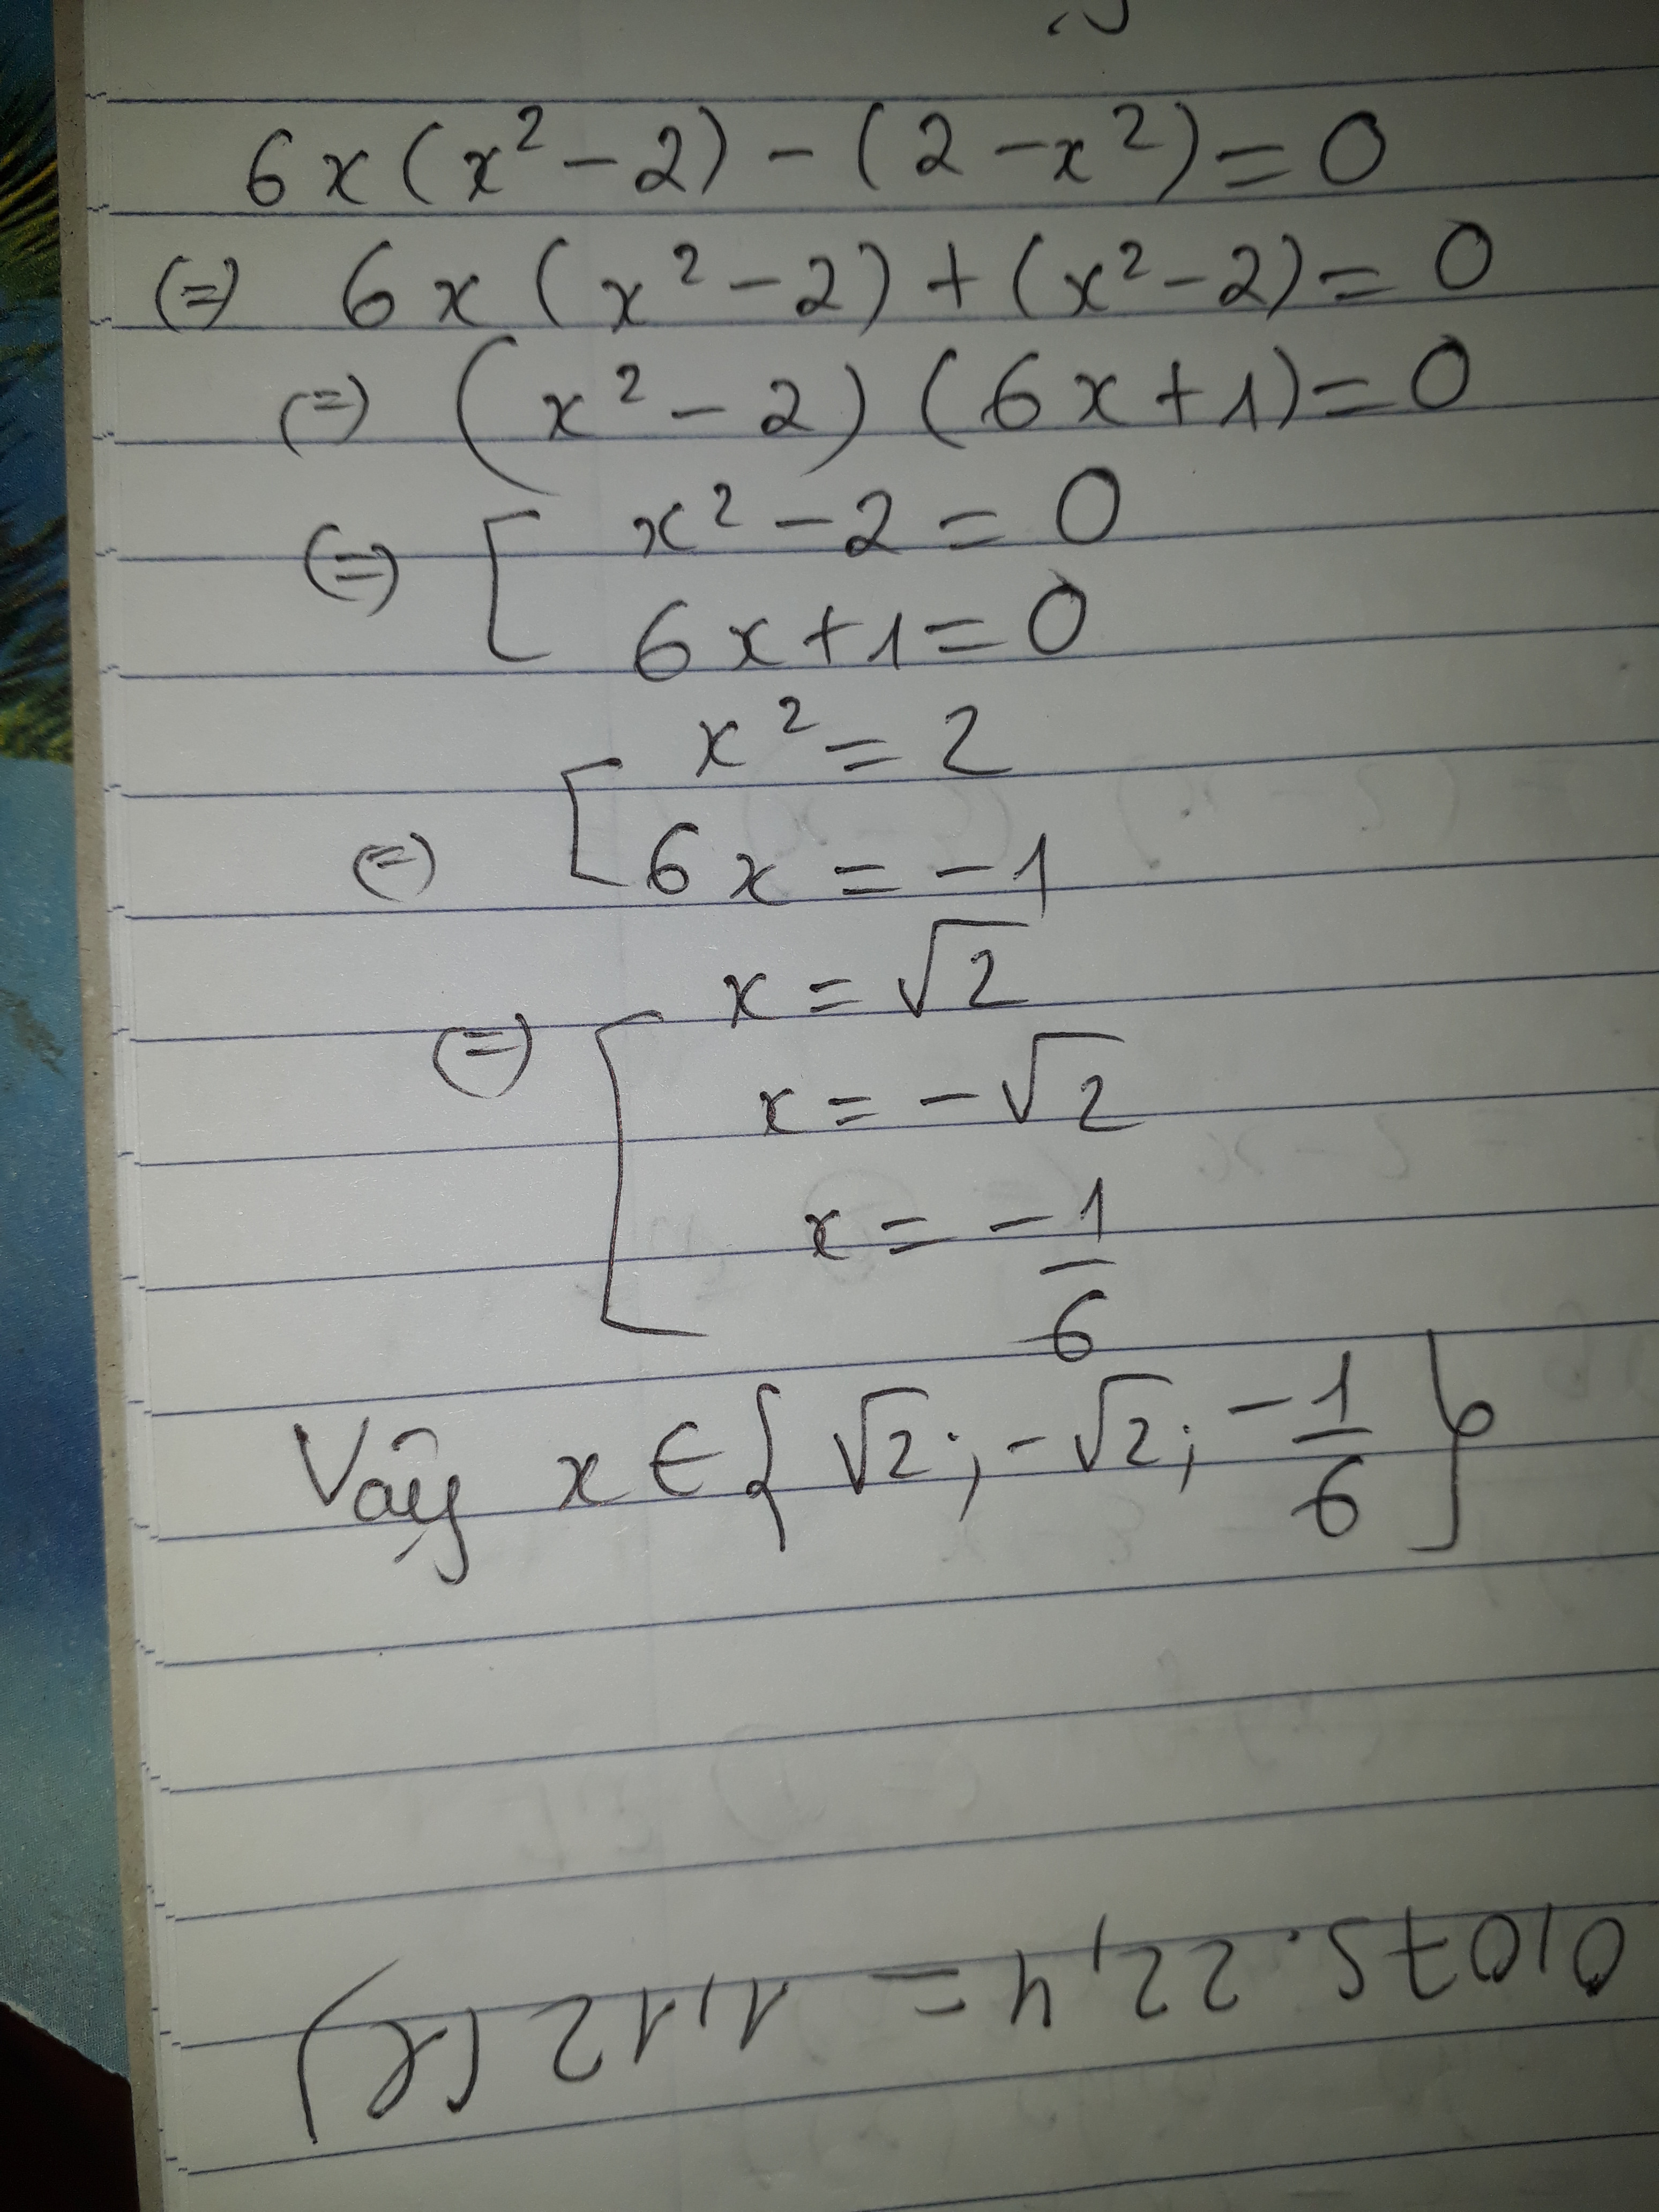 6x(x² - 2) - (2 - x²) = 0
(=) 6x(x² - 2) + (x² - 2) = 0
(=) (x² - 2)(6x + 1) = 0
(=) [ x² - 2 = 0
6x + 1 = 0
(=) [ x² = 2
6x = -1
(=) [ x = √2
x = -√2
x = -1/6
Vậy x ∈ { √2 ; -√2 ; -1/6 }
0,075 . 22,4 = 1,12 (l)